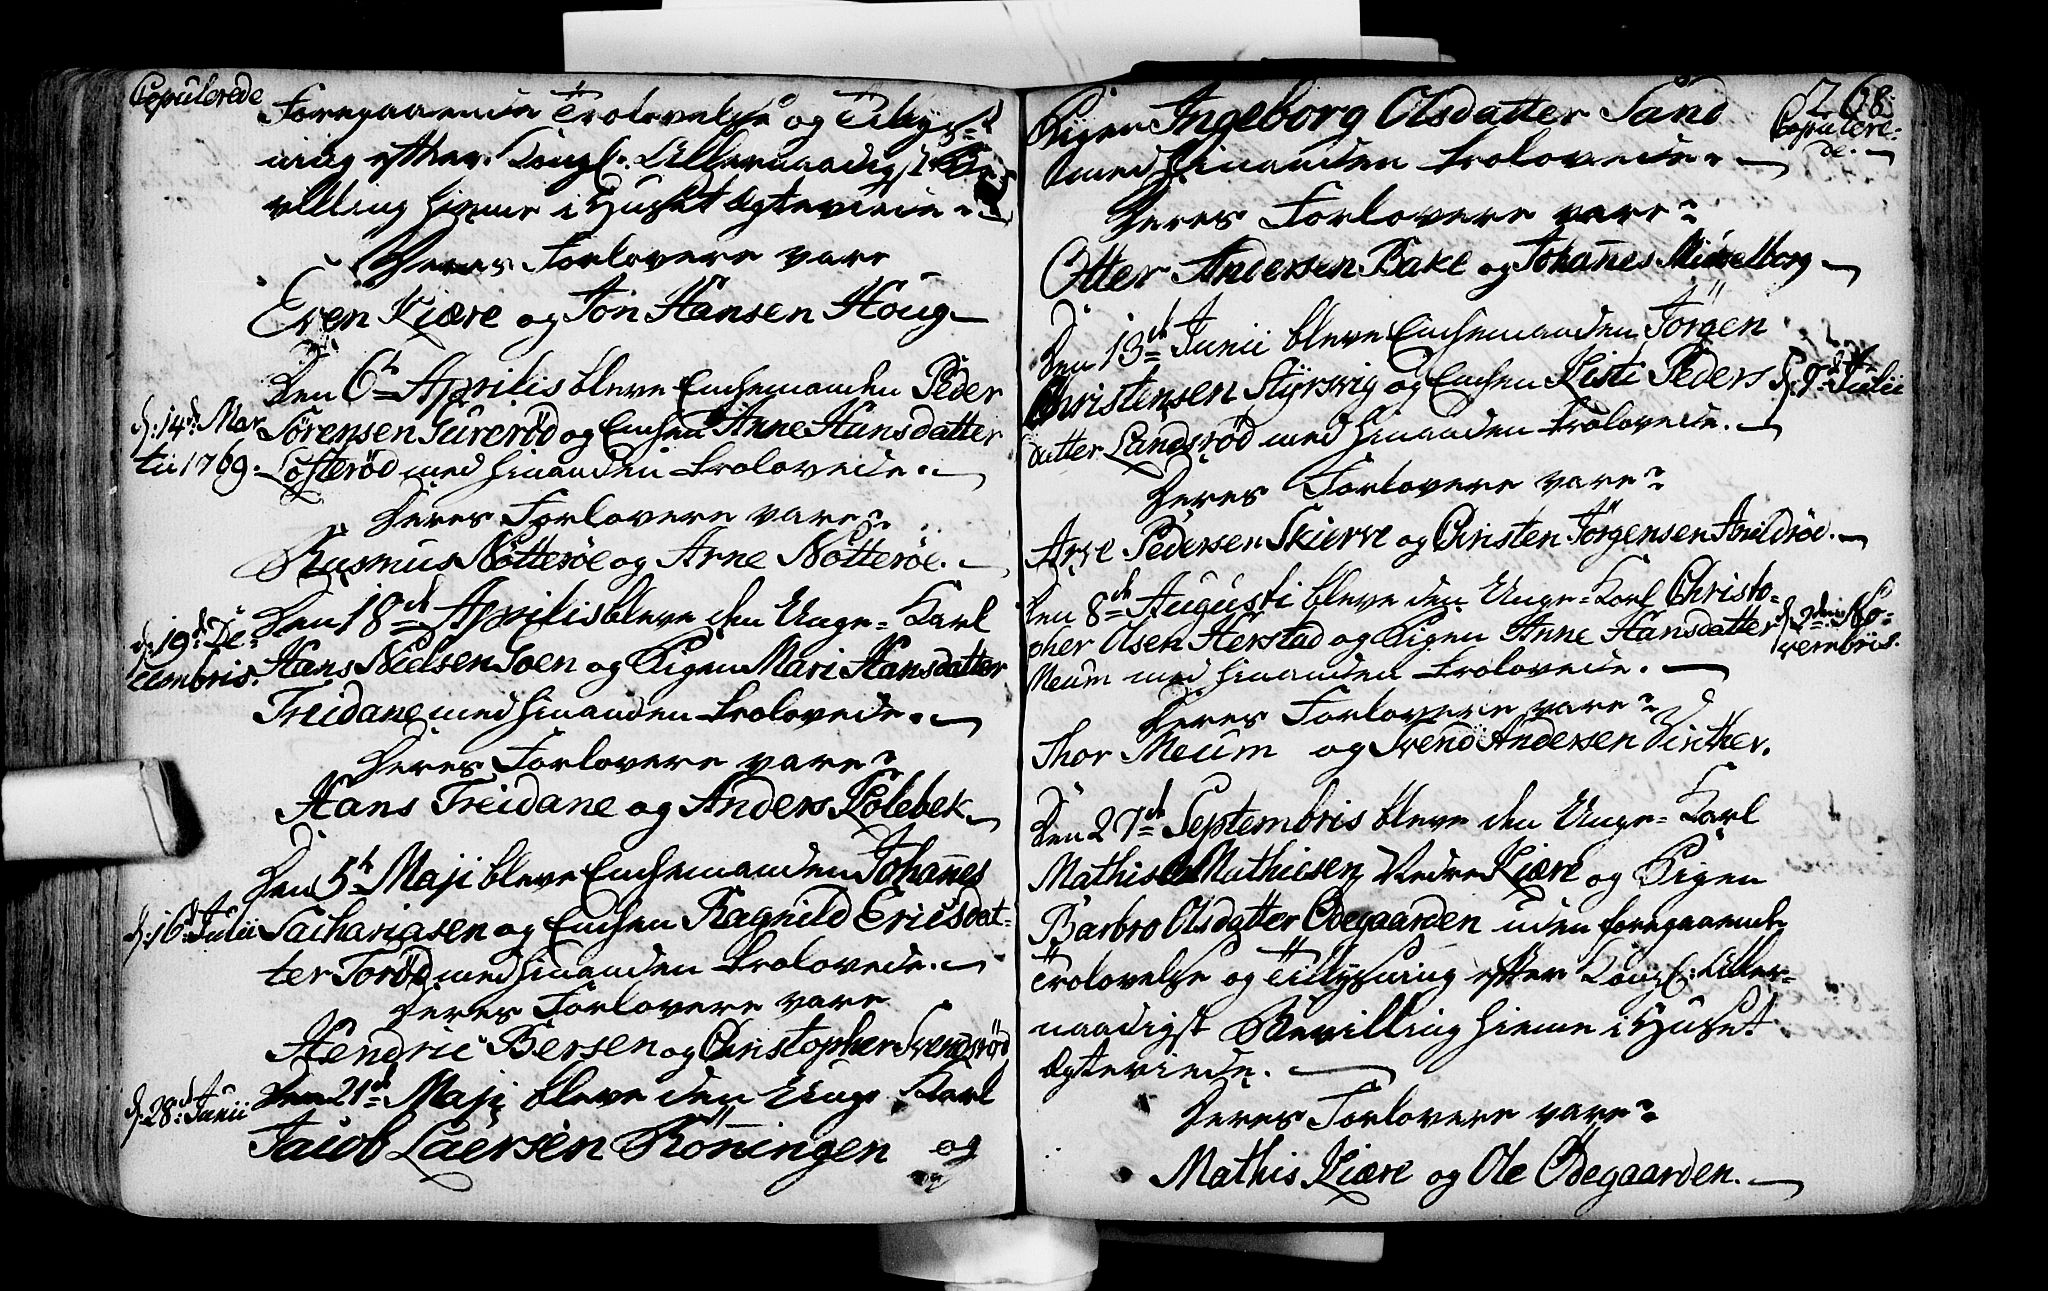 Copulerede
Foregaaende Trolovelse og Tillys-
ning efter Kongl. Allernaadigst Be-
villing hiemme i Huset Ægteviede.
Deres Forlovere vare
Even Kiære og Jon Hansen Houg
Den 6te Aprilis bleve Enchemanden Peder
d: 14de Mar- Sörensen Gureröd og Enchen Anne Hansdatter
tii 1769. Lofteröd med hinanden trolovede.
Deres Forlovere vare
Rasmus Nötteröe og Arne Nötteröe.
Den 18de Aprilis bleve den Unge-Karl
d: 19de De- Hans Nielsen Goen og Pigen Mari Hansdatter
cembris. Treidane med hinanden trolovede.
Deres Forlovere vare
Hans Treidane og Anders Kölebek
Den 5te Maji bleve Enchemanden Johannes
d: 16de Julii Sachariasen og Enchen Ragnild Ericsdat-
ter Toröd med hinanden trolovede.
Deres Forlovere vare
Hendric Bersen og Christopher Svendsröd
d: 28de Junii Den 21de Maji bleve den Unge Karl
Jacob Laersen Rönningen og
268
Pigen Ingeborg Olsdatter Sand Copulere-
med hinanden trolovede. de.
Deres Forlovere vare
Otter Andersen Bake og Johannes Mickelborg
Den 13de Junii bleve Enchemanden Jörgen
Christensen Styrsvig og Enchen Kisti Peders d. 9de Julii
datter Landsröd med hinanden trolovede.
Deres Forlovere vare
Arve Pedersen Skierve og Christen Jörgensen Anildröe.
Den 8de Augusti bleve den Unge-Karl Christo-
pher Olsen Herstad og Pigen Anne Hansdatter d. 2den No-
Meum med hinanden trolovede. vembris.
Deres Forlovere vare
Thor Meum og Svend Andersen Virther.
Den 27de Septembris bleve den Unge-Karl
Mathis Mathiesen Nedre Kiære og Pigen
Barbro Olsdatter Ödegaarden uden foregaaende
Trolovelse og Tillysning efter Kongl: Aller-
naadigst Bevilling hiemme i Huset
Ægteviede.
Deres Forlovere vare
Mathis Kiære og Ole Ödegaarden.